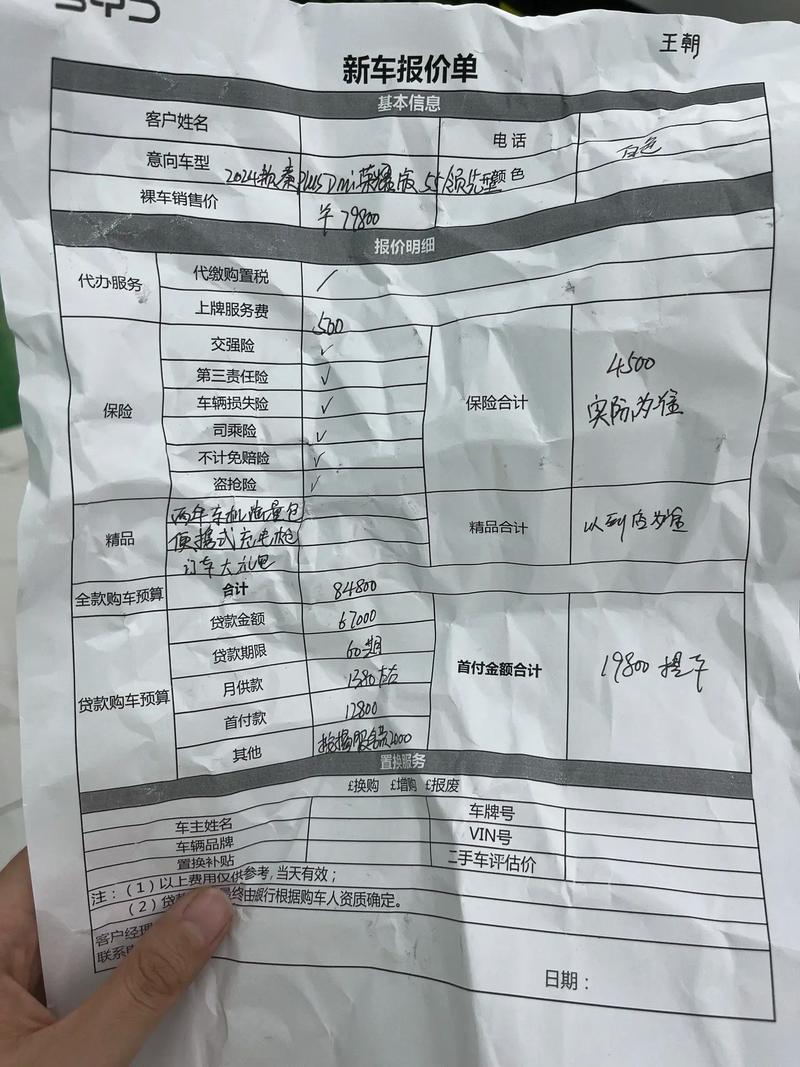 BYD
王朝
新车报价单
基本信息
客户姓名 电话
意向车型 2024款秦PLUS Dmi荣耀版 55领先型 颜色 白色
裸车销售价 ¥79800
报价明细
代办服务 代缴购置税 /
上牌服务费 500
保险 交强险 ✓ 保险合计 4500 实际为准
第三责任险 ✓
车辆损失险 ✓
司乘险 ✓
不计免赔险 ✓
盗抢险 ✓
精品 两年车机流量包 精品合计 以到店为准
便携式充电枪
订车大礼包
全款购车预算 合计 84800
贷款购车预算 贷款金额 67000 首付金额合计 19800 提车
贷款期限 60期
月供款 1380左右
首付款 12800
其他 服务费2000
置换服务
£换购 £增购 £报废
车主姓名 车牌号
车辆品牌 VIN号
置换补贴 二手车评估价
注：（1）以上费用仅供参考，当天有效；
（2）贷款 终由银行根据购车人资质确定。
客户经理
联系
日期：